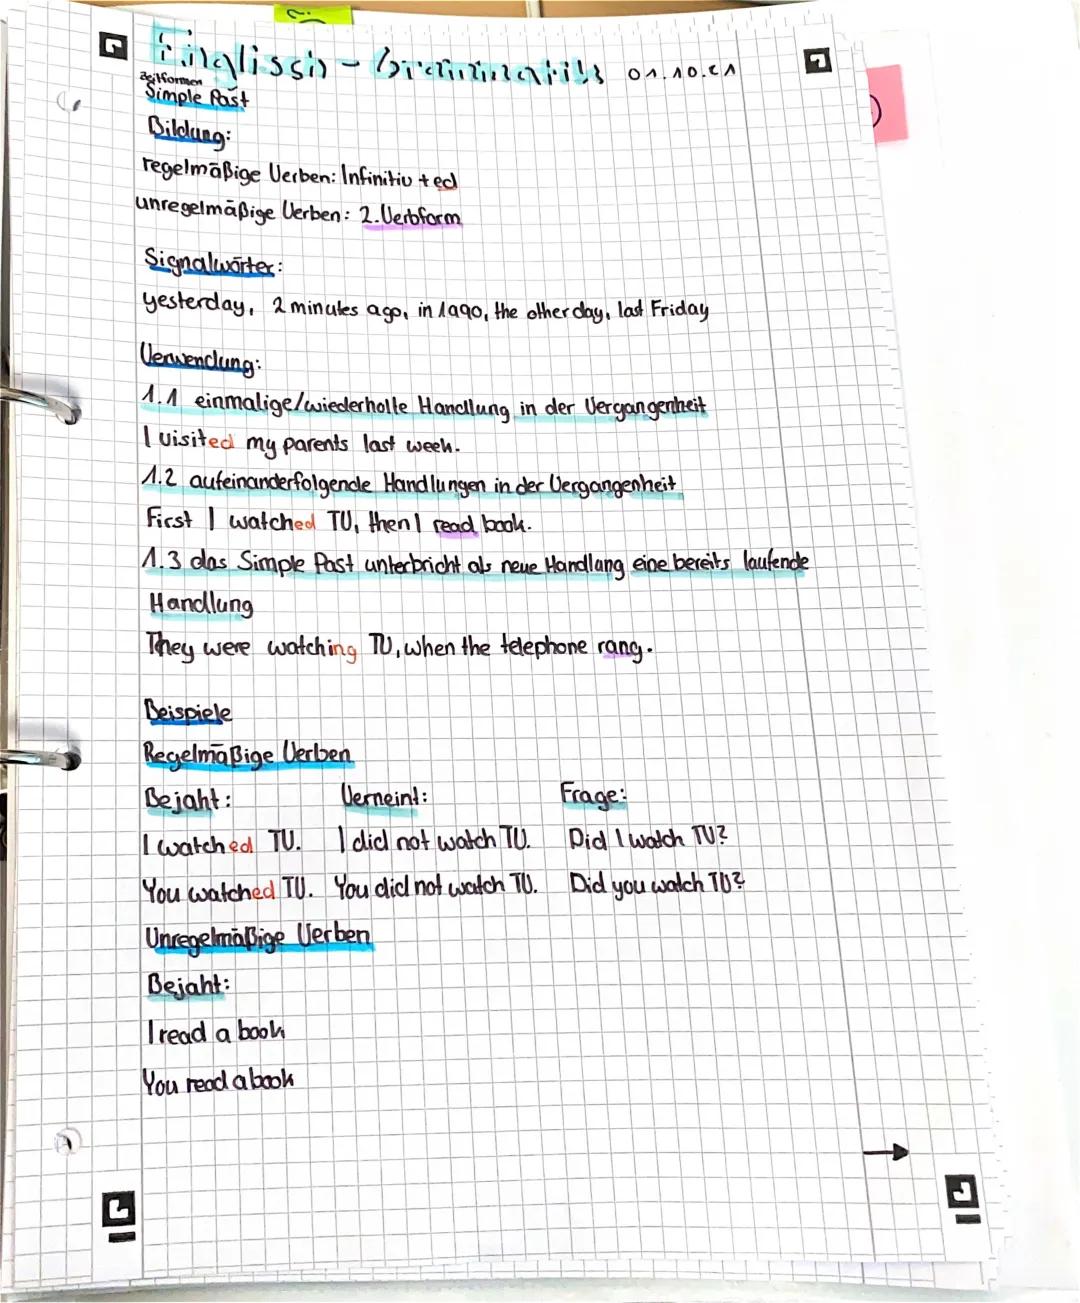 Englisch - Grammatik 01.10.21
Zeitformen
Simple Past
Bildung:
regelmäßige Verben: Infinitiv + ed
unregelmäßige Verben: 2. Verbform
Signalwörter:
yesterday, 2 minutes ago, in 1990, the other day, last Friday
Verwendung:
1.1 einmalige/wiederholle Handlung in der Vergangenheit
I visited my parents last week.
1.2 aufeinanderfolgende Handlungen in der Vergangenheit
First I watched TV, then I read book.
1.3 das Simple Past unterbricht als neue Handlung eine bereits laufende
Handlung
They were watching TV, when the telephone rang.
Beispiele
Regelmäßige Verben
Bejaht: Verneint: Frage:
I watched TV. I did not watch TV. Did I watch TV?
You watched TV. You did not watch TV. Did you watch TV?
Unregelmäßige Verben
Bejaht:
I read a book
You read a book